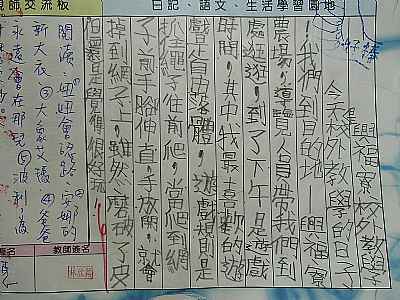 師交流板
日記、語文、生活學習園地
好棒
興福寮校外教學
今天校外教學的日子
！我們到目的地—興福寮
農場，導覽人員帶我們到
處逛逛，到了下午是遊戲
時間，其中我最喜歡的遊
戲是自由落體，遊戲規則是
抓繩子往前爬，當爬到網
子前手腳伸直，手放開，就會
掉到網子上，雖然磨破了皮
但還是覺得很好玩！
閱讀：
新大衣③大象艾瑪④爸爸
永遠會在那兒⑤波利
教師簽名